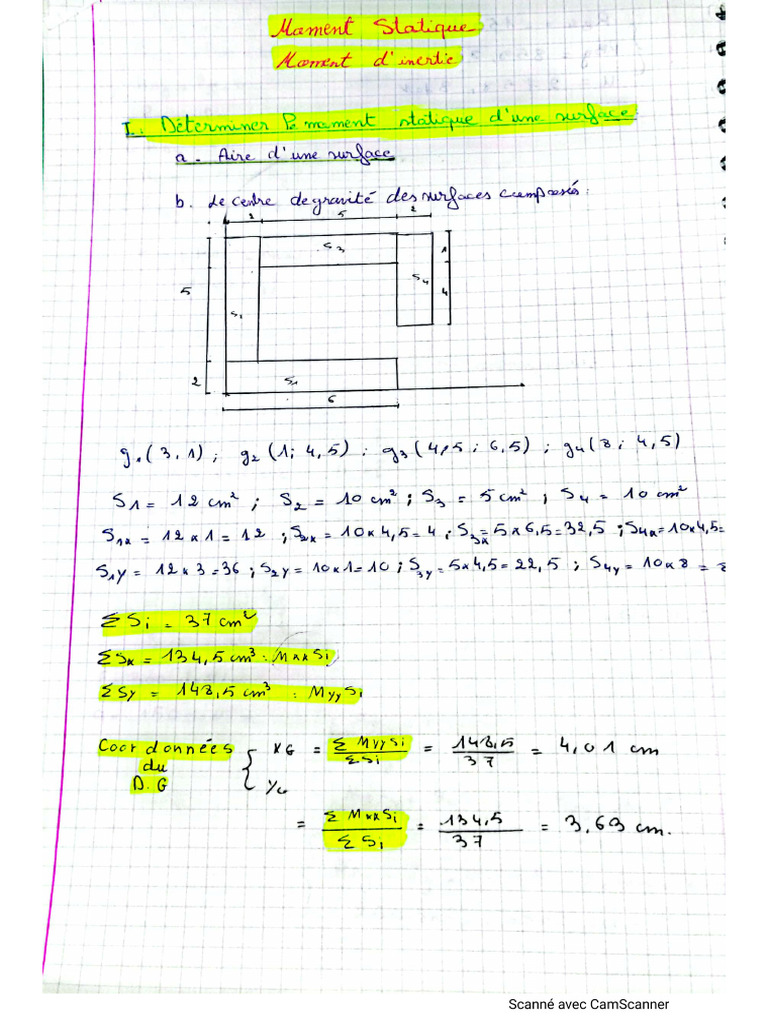 Moment Statique
Moment d'inertie
I. Déterminer le moment statique d'une surface
a - Aire d'une surface
b. Le centre de gravité des surfaces composés :
2 5 2
S3
1
S4
5
4
S2
2
S1
6
g1 (3, 1) ; g2 (1; 4,5) ; g3 (4,5 ; 6,5) ; g4 (8 ; 4,5)
S1 = 12 cm² ; S2 = 10 cm² ; S3 = 5 cm² ; S4 = 10 cm²
S1x = 12 x 1 = 12 ; S2x = 10 x 4,5 = 4 ; S3x = 5 x 6,5 = 32,5 ; S4x = 10 x 4,5 =
S1y = 12 x 3 = 36 ; S2y = 10 x 1 = 10 ; S3y = 5 x 4,5 = 22,5 ; S4y = 10 x 8 =
Σ Si = 37 cm²
Σ Sx = 134,5 cm³ : Mxx Si
Σ Sy = 148,5 cm³ : Myy Si
Coordonnées du D.G { XG = Σ Myy Si / Σ Si = 148,5 / 37 = 4,01 cm
YG
= Σ Mxx Si / Σ Si = 134,5 / 37 = 3,63 cm.
Scanné avec CamScanner